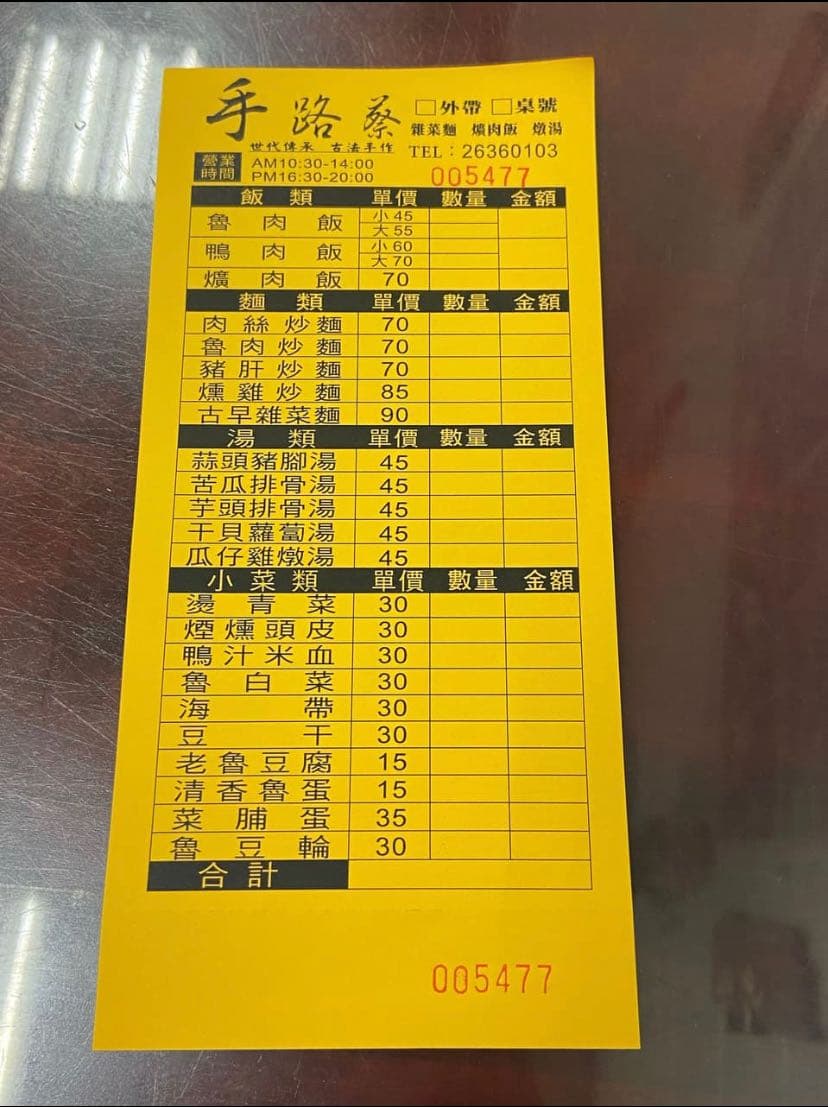 手路蔡
□外帶 □桌號
雜菜麵 爌肉飯 燉湯
世代傳承 古法手作
TEL：26360103
營業時間
AM10:30-14:00
PM16:30-20:00
005477
飯類 單價 數量 金額
魯肉飯 小45
大55
鴨肉飯 小60
大70
爌肉飯 70
麵類 單價 數量 金額
肉絲炒麵 70
魯肉炒麵 70
豬肝炒麵 70
燻雞炒麵 85
古早雜菜麵 90
湯類 單價 數量 金額
蒜頭豬腳湯 45
苦瓜排骨湯 45
芋頭排骨湯 45
干貝蘿蔔湯 45
瓜仔雞燉湯 45
小菜類 單價 數量 金額
燙青菜 30
煙燻頭皮 30
鴨汁米血 30
魯白菜 30
海帶 30
豆干 30
老魯豆腐 15
清香魯蛋 15
菜脯蛋 35
魯豆輪 30
合計
005477